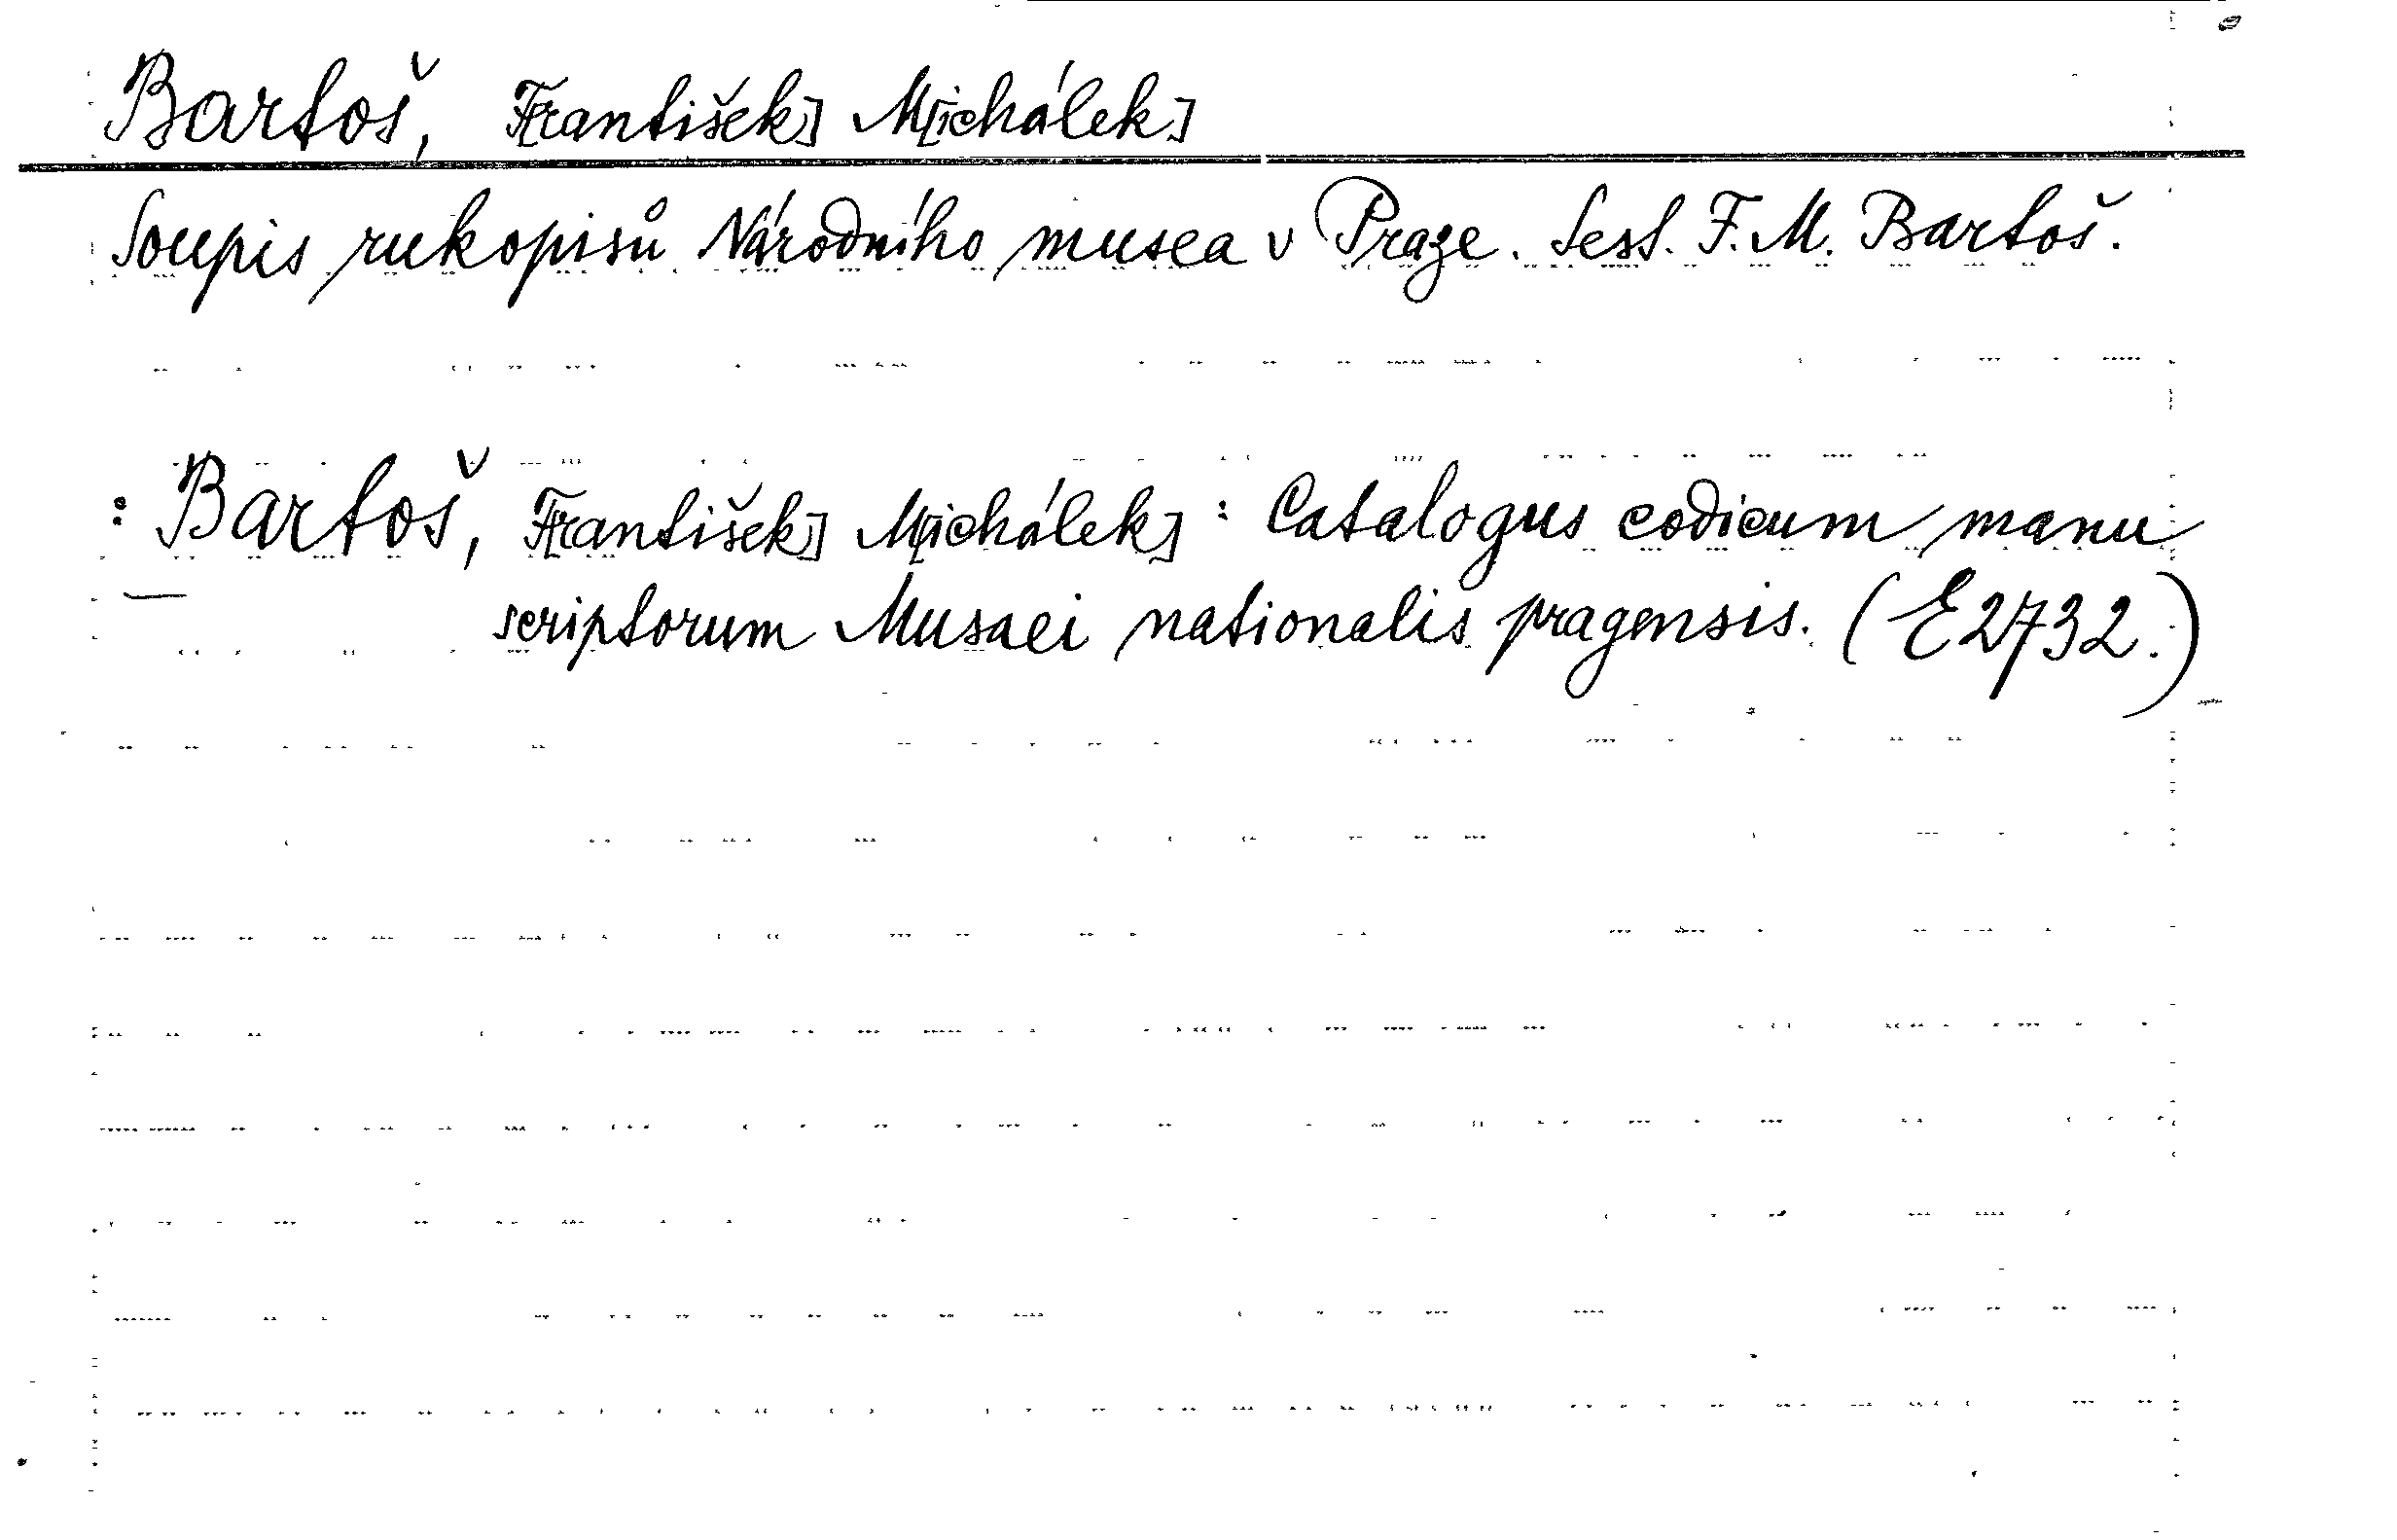 Bartoš, F[rantišek] M[ichálek]
Soupis rukopisů Národního musea v Praze. Sest. F. M. Bartoš.
: Bartoš, F[rantišek] M[ichálek] : Catalogus codicum manu
scriptorum Musaei nationalis pragensis. (E2732.)